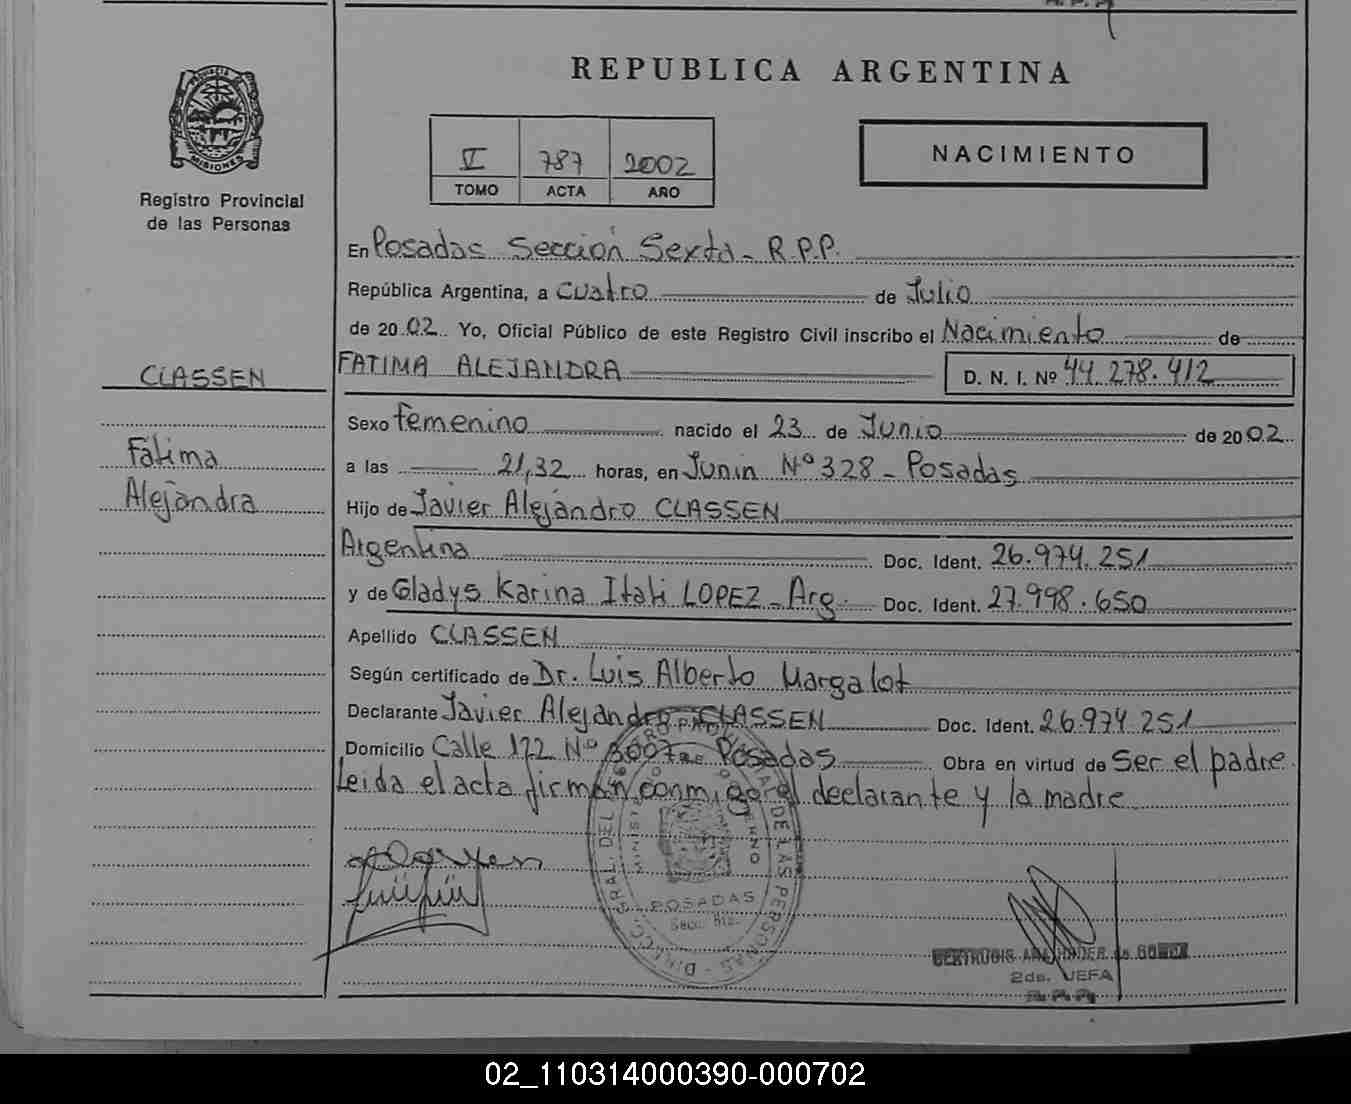 REPUBLICA ARGENTINA
PROVINCIA DE
MISIONES
Registro Provincial
de las Personas
V 787 2002
TOMO ACTA AÑO
NACIMIENTO
En Posadas Sección Sexta - R.P.P.
República Argentina, a Cuatro de Julio
de 2002 Yo, Oficial Público de este Registro Civil inscribo el Nacimiento de
FATIMA ALEJANDRA D. N. I. Nº 44.278.412
CLASSEN
Fatima
Alejandra
Sexo femenino nacido el 23 de Junio de 2002
a las 21,32 horas, en Junin Nº 328 - Posadas
Hijo de Javier Alejandro CLASSEN
Argentina Doc. Ident. 26.974.251
y de Gladys Karina Itati LOPEZ - Arg. Doc. Ident. 27.998.650
Apellido CLASSEN
Según certificado de Dr. Luis Alberto Margalot
Declarante Javier Alejandro CLASSEN Doc. Ident. 26.974.251
Domicilio Calle 122 Nº Posadas Obra en virtud de Ser el padre
Leida el acta firman conmigo el declarante y la madre
DIRECC. GRAL. DEL DE LAS PERSONAS
POSADAS
2da. JEFA
02_110314000390-000702